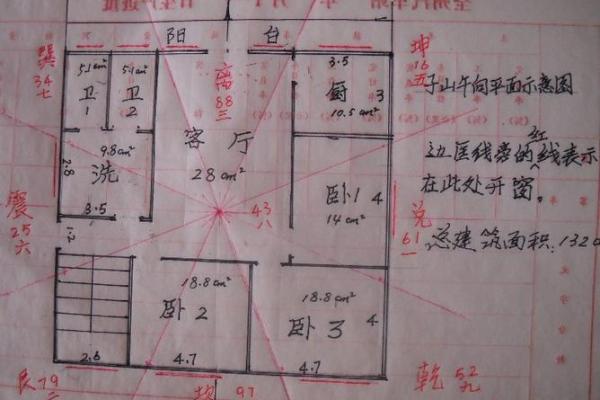 阳 台
巽
34
七
5.1cm² 5.1cm²
卫 卫
1 2
离
88
三
3.5
厨 3
10.5cm²
坤
16
五
子山午向平面示意图
9.8cm²
洗
2.8
3.5
客 厅
28cm²
红
边匡线旁的线表示
在此处开窗。
卧1 4
14cm²
震
25
六
1.2
43
八
兑
61
一
总建筑面积:132
18.8cm²
卧2
18.8cm²
卧3 4
2.6 4.7 4.7
艮79
97
乾 52
九